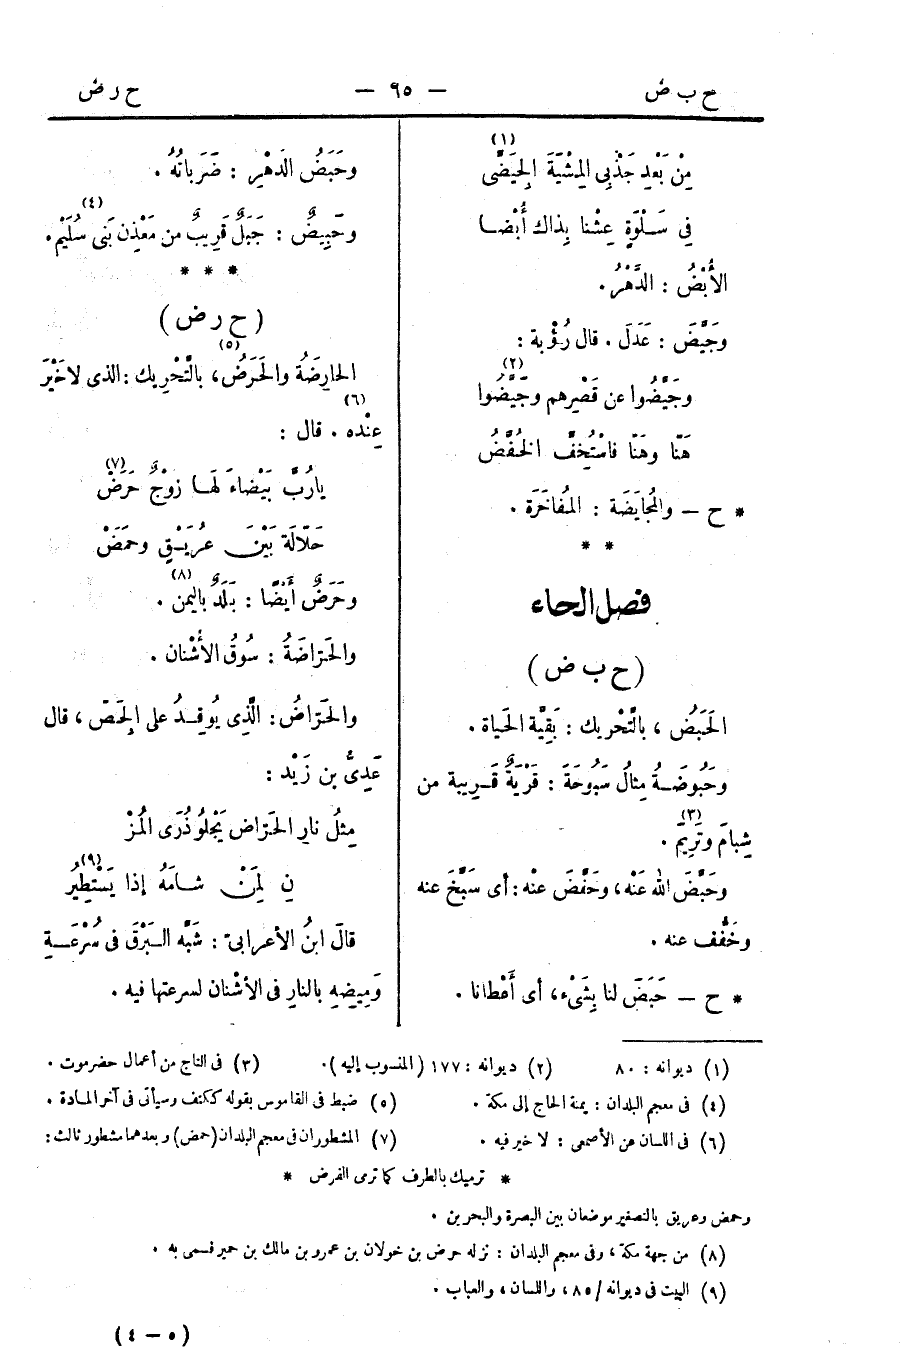 ح ب ض — ٦٥ — ح ر ض
مِنْ بَعْدِ جَذْبِى المِشْيَةَ الجِيَضَّى (١)
فِى سَلْوَةٍ عِشْنا بِذاك أُبْضا
الأُبْضُ : الدَّهْرُ .
وجَيَّضَ : عَدَلَ . قال رُؤْبة :
وجَيَّضُوا عن قَصْرِهم وجَيَّضُوا (٢)
هَنّا وهَنّا فاسْتُخِفَّ الخُفَّضُ
* ح — والمُجايَضَة : المُفاخَرَة .
* *
فصل الحاء
( ح ب ض )
الحَبَضُ ، بالتَّحْريك : بَقِيَّة الحَياة .
وحَبُوضَةُ مِثالُ سَبُوحَةَ : قَرْيَةٌ قَرِيبة من
شِبامَ وتَرِيمَ . (٣)
وحَبَّضَ الله عَنْه ، وخَفَّضَ عنْه : أى سَبَّخَ عنه
وخَفَّف عنه .
* ح — حَبَضَ لنا بِشَىْء ، أى أَمْطانا .
وحَبَضُ الدَهْرِ : ضَرَباتُهُ .
وحَبِيضٌ : جَبَلٌ قَرِيبٌ من مَعْدِن بَنِى سُلَيْم . (٤)
* * *
( ح ر ض )
الحارِضَةُ والحَرَضُ ، بالتَّحْرِيك : الذى لا خَيْرَ (٥)
عِنْده . قال : (٦)
يارُبَّ بَيْضاءَ لَها زوْجٌ حَرَضْ (٧)
حَلاّلَة بَيْنَ عُرَيْقٍ وحَمَضْ
وحَرَضٌ أَيْضًا : بَلَدٌ باليمن . (٨)
والحَرّاضَةُ : سُوقُ الأُشْنان .
والحَرّاضُ : الَّذِى يُوقِدُ على الجَصّ ، قال
عَدِىُّ بن زَيْد :
مِثلُ نارِ الحَرّاضِ يَجْلُو ذُرَى المُزْ
نِ لِمَنْ شامَهُ إذا يَسْتَطِيرُ (٩)
قالَ ابنُ الأعرابىّ : شَبَّه البَرْقَ فى سُرْعَةِ
وَمِيضِهِ بالنارِ فى الأشْنان لسرعتها فيه .
(١) ديوانه : ٨٠ (٢) ديوانه : ١٧٧ (المنسوب إليه) . (٣) فى التاج من أعمال حضرموت .
(٤) فى معجم البلدان : يمنة الحاج إلى مكة . (٥) ضبط فى القاموس بقوله ككتف وسيأتى فى آخر المادة .
(٦) فى اللسان عن الأصمعى : لا خير فيه . (٧) المشطوران فى معجم البلدان (حمض) وبعدهما مشطور ثالث :
* ترميك بالطرف كما ترمى الغرض *
وحمض وعريق بالتصغير موضعان بين البصرة والبحرين .
(٨) من جهة مكة ، وفى معجم البلدان : نزله حرض بن خولان بن عمرو بن مالك بن حمير فسمى به .
(٩) البيت فى ديوانه / ٨٥ ، واللسان ، والعباب .
(٥ — ٤)